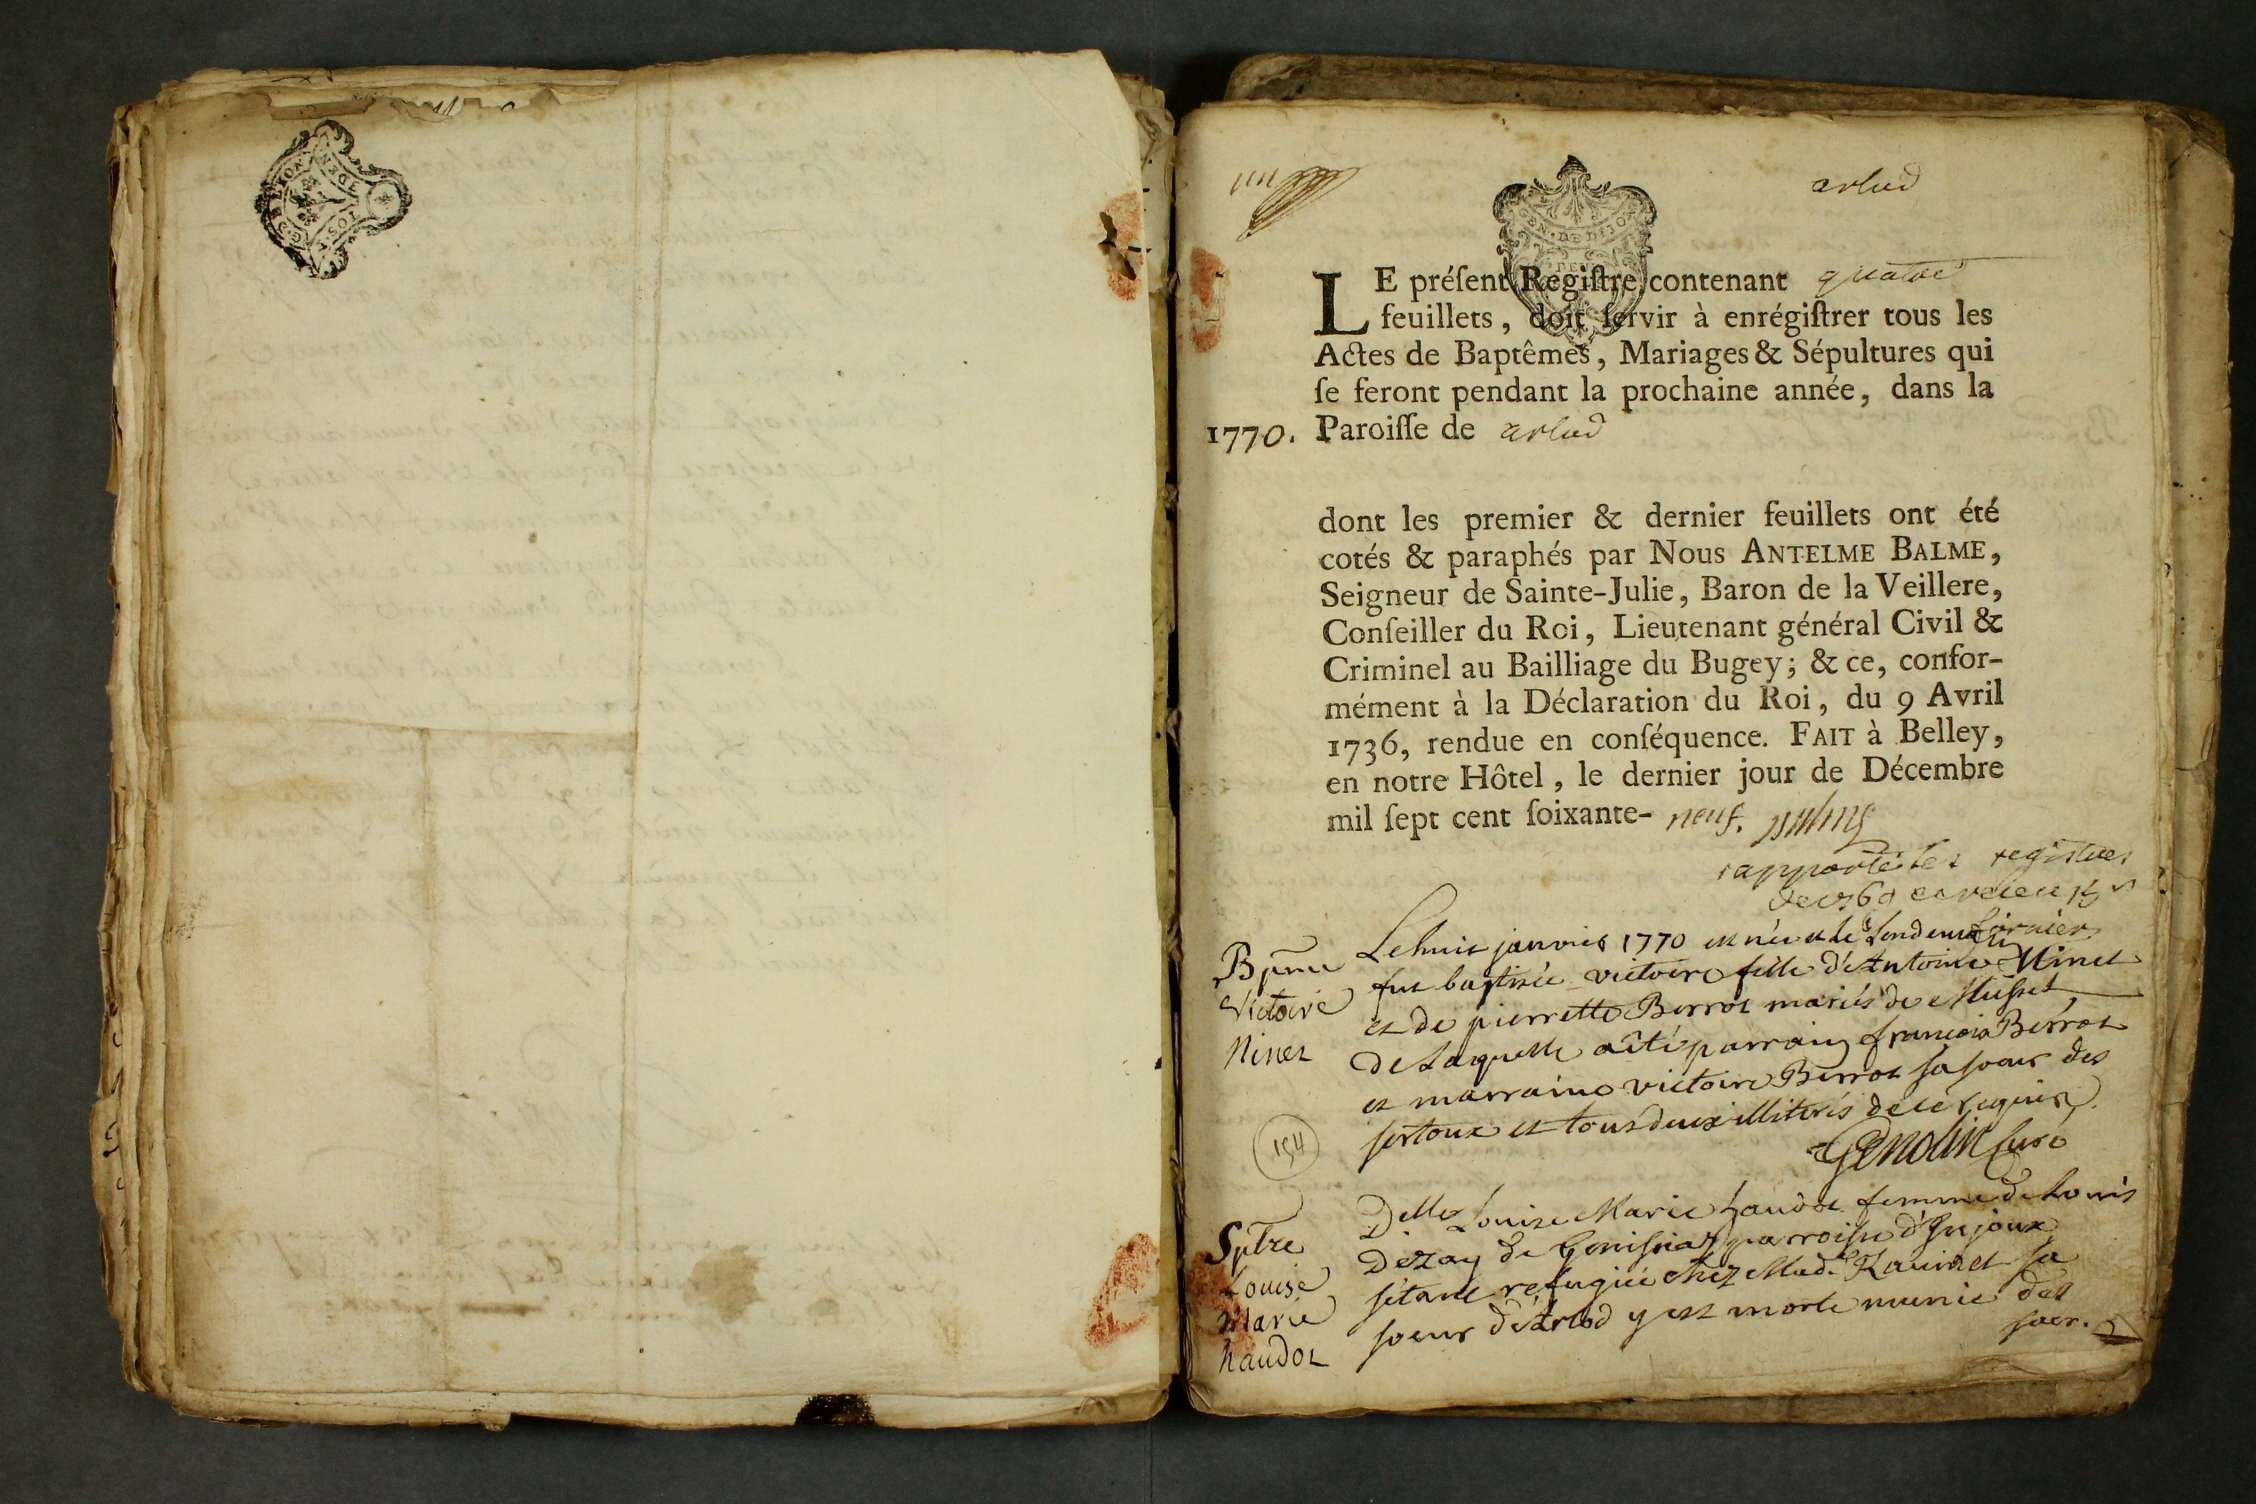 GEN. DE DIJON
arlod
LE préſent Regiſtre contenant quatre
feuillets, doit ſervir à enrégiſtrer tous les
Actes de Baptêmes, Mariages & Sépultures qui
ſe feront pendant la prochaine année, dans la
1770. Paroiſſe de arlod
dont les premier & dernier feuillets ont été
cotés & paraphés par Nous ANTELME BALME,
Seigneur de Sainte-Julie, Baron de la Veillere,
Conſeiller du Roi, Lieutenant général Civil &
Criminel au Bailliage du Bugey; & ce, confor-
mément à la Déclaration du Roi, du 9 Avril
1736, rendue en conſéquence. FAIT à Belley,
en notre Hôtel, le dernier jour de Décembre
mil ſept cent ſoixante- neuf. Balme
rapporté les registres
Bpme
Victoire
Ninet
Le huit janvier 1770 est née et le lendemain
fut baptisée victoire fille d'Antoine Ninet
et de pierrette Berrot mariés de Musset,
de laquelle a été parrain françois Berrot
et marraine victoire Berrot sa soeur des
sertoux et tous deux illiterés de ce requis.
Genolin Curé
154
Spltre
Louise
Marie
haudot
Delle Louise Marie haudot femme de Louis
Dezay de Genissiaz parroisse d'Injoux
s'étant refugiée chez Made Ravinet sa
soeur d'Arlod y est morte munie des
sacr.